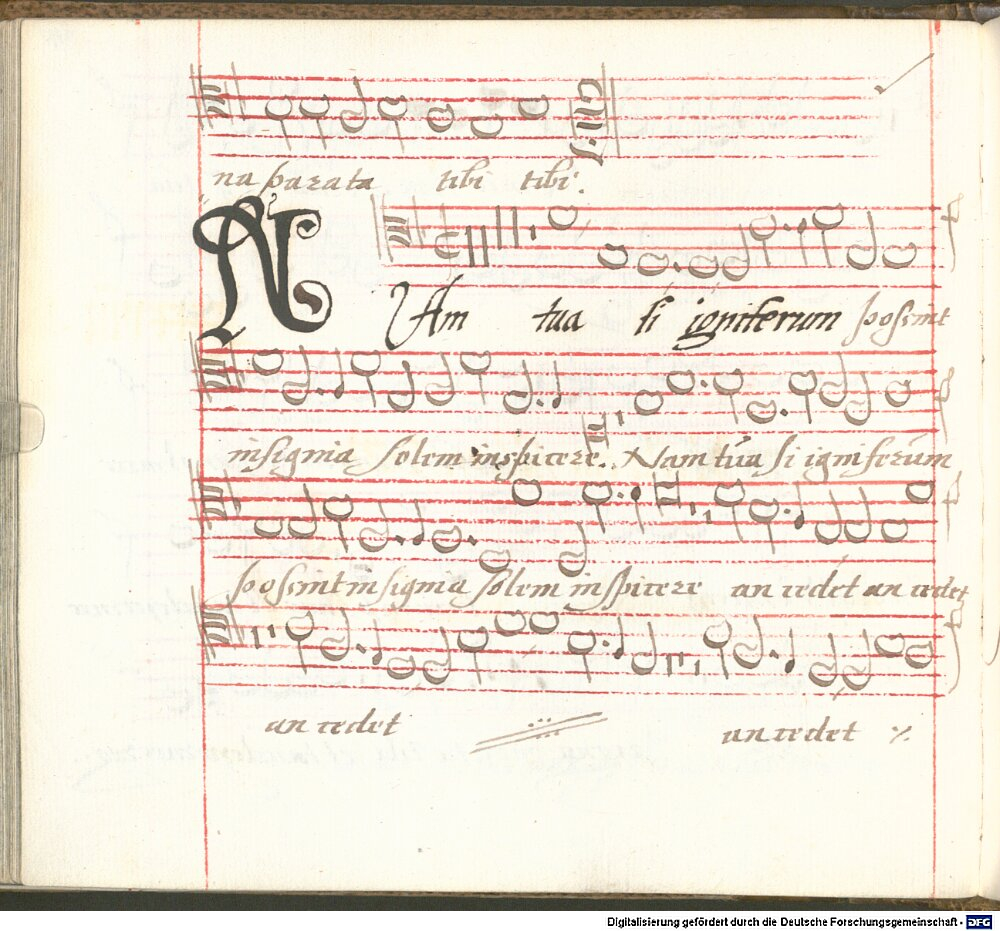 na parata tibi tibi.
NAm tua si igniferum possint
insignia solem inspicere. Nam tua si igniferum
possint insignia solem inspicere an cedet an cedet
an cedet an cedet
Digitalisierung gefördert durch die Deutsche Forschungsgemeinschaft - DFG